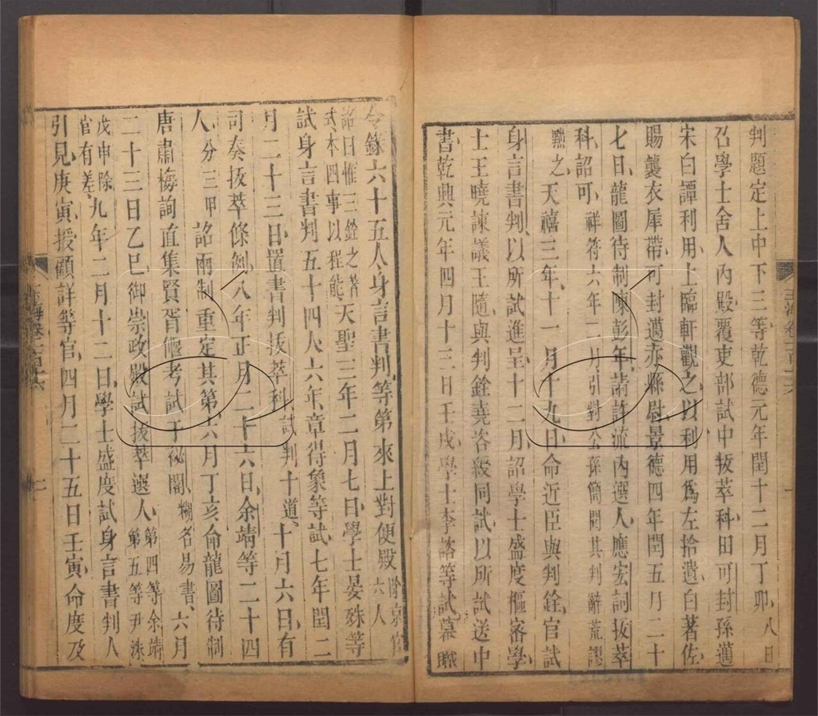 判題定上中下三等乾德元年閏十二月丁卯八日
召學士舍人內殿覆吏部試中拔萃科田可封孫邁
宋白譚利用上臨軒觀之以利用爲左拾遺白著佐
賜襲衣犀帶可封邁赤縣尉景德四年閏五月二十
七日龍圖待制陳彭年請許流內選人應宏詞拔萃
科詔可祥符六年二月引對公孫簡閱其判辭荒謬
黜之天禧三年十一月十九日命近臣與判銓官試
身言書判以所試進呈十二月詔學士盛度樞密學
士王曉諫議王隨與判銓堯咨綬同試以所試送中
書乾興元年四月十三日壬戌學士李諮等試幕職
令錄六十五人身言書判等第來上對便殿除京官六人
詔曰惟三銓之著式本四事以程能天聖三年二月七日學士晏殊等
試身言書判五十四人六年章得象等試七年閏二
月二十三日置書判拔萃科試判十道十月六日有
司奏拔萃條例八年正月二十六日余靖等二十四
人分三甲詔兩制重定其第六月丁亥命龍圖待制
唐肅梅詢直集賢胥偃考試于祕閣糊名易書六月
二十三日乙巳御崇政殿試拔萃選人第四等余靖第五等尹洙
戊申除官有差九年二月十二日學士盛度試身言書判人
引見庚寅授顧詳等官四月二十五日壬寅命度及